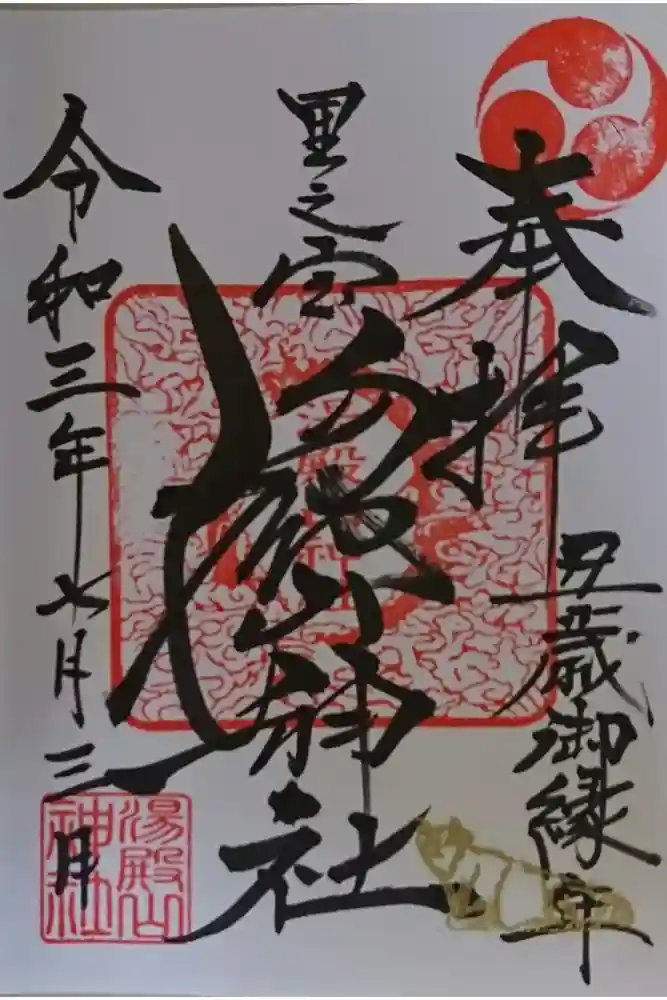 奉拝
丑歳御縁年
里之宮
湯殿山神社
令和三年七月三日
湯殿山
神社